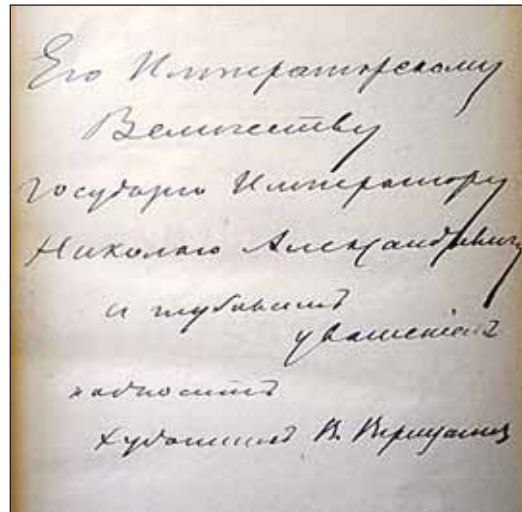 Его Императорскому
Величеству
Государю Императору
Николаю Александровичу
с глубокимъ
уваженіемъ
подноситъ
художникъ В. Верещагинъ